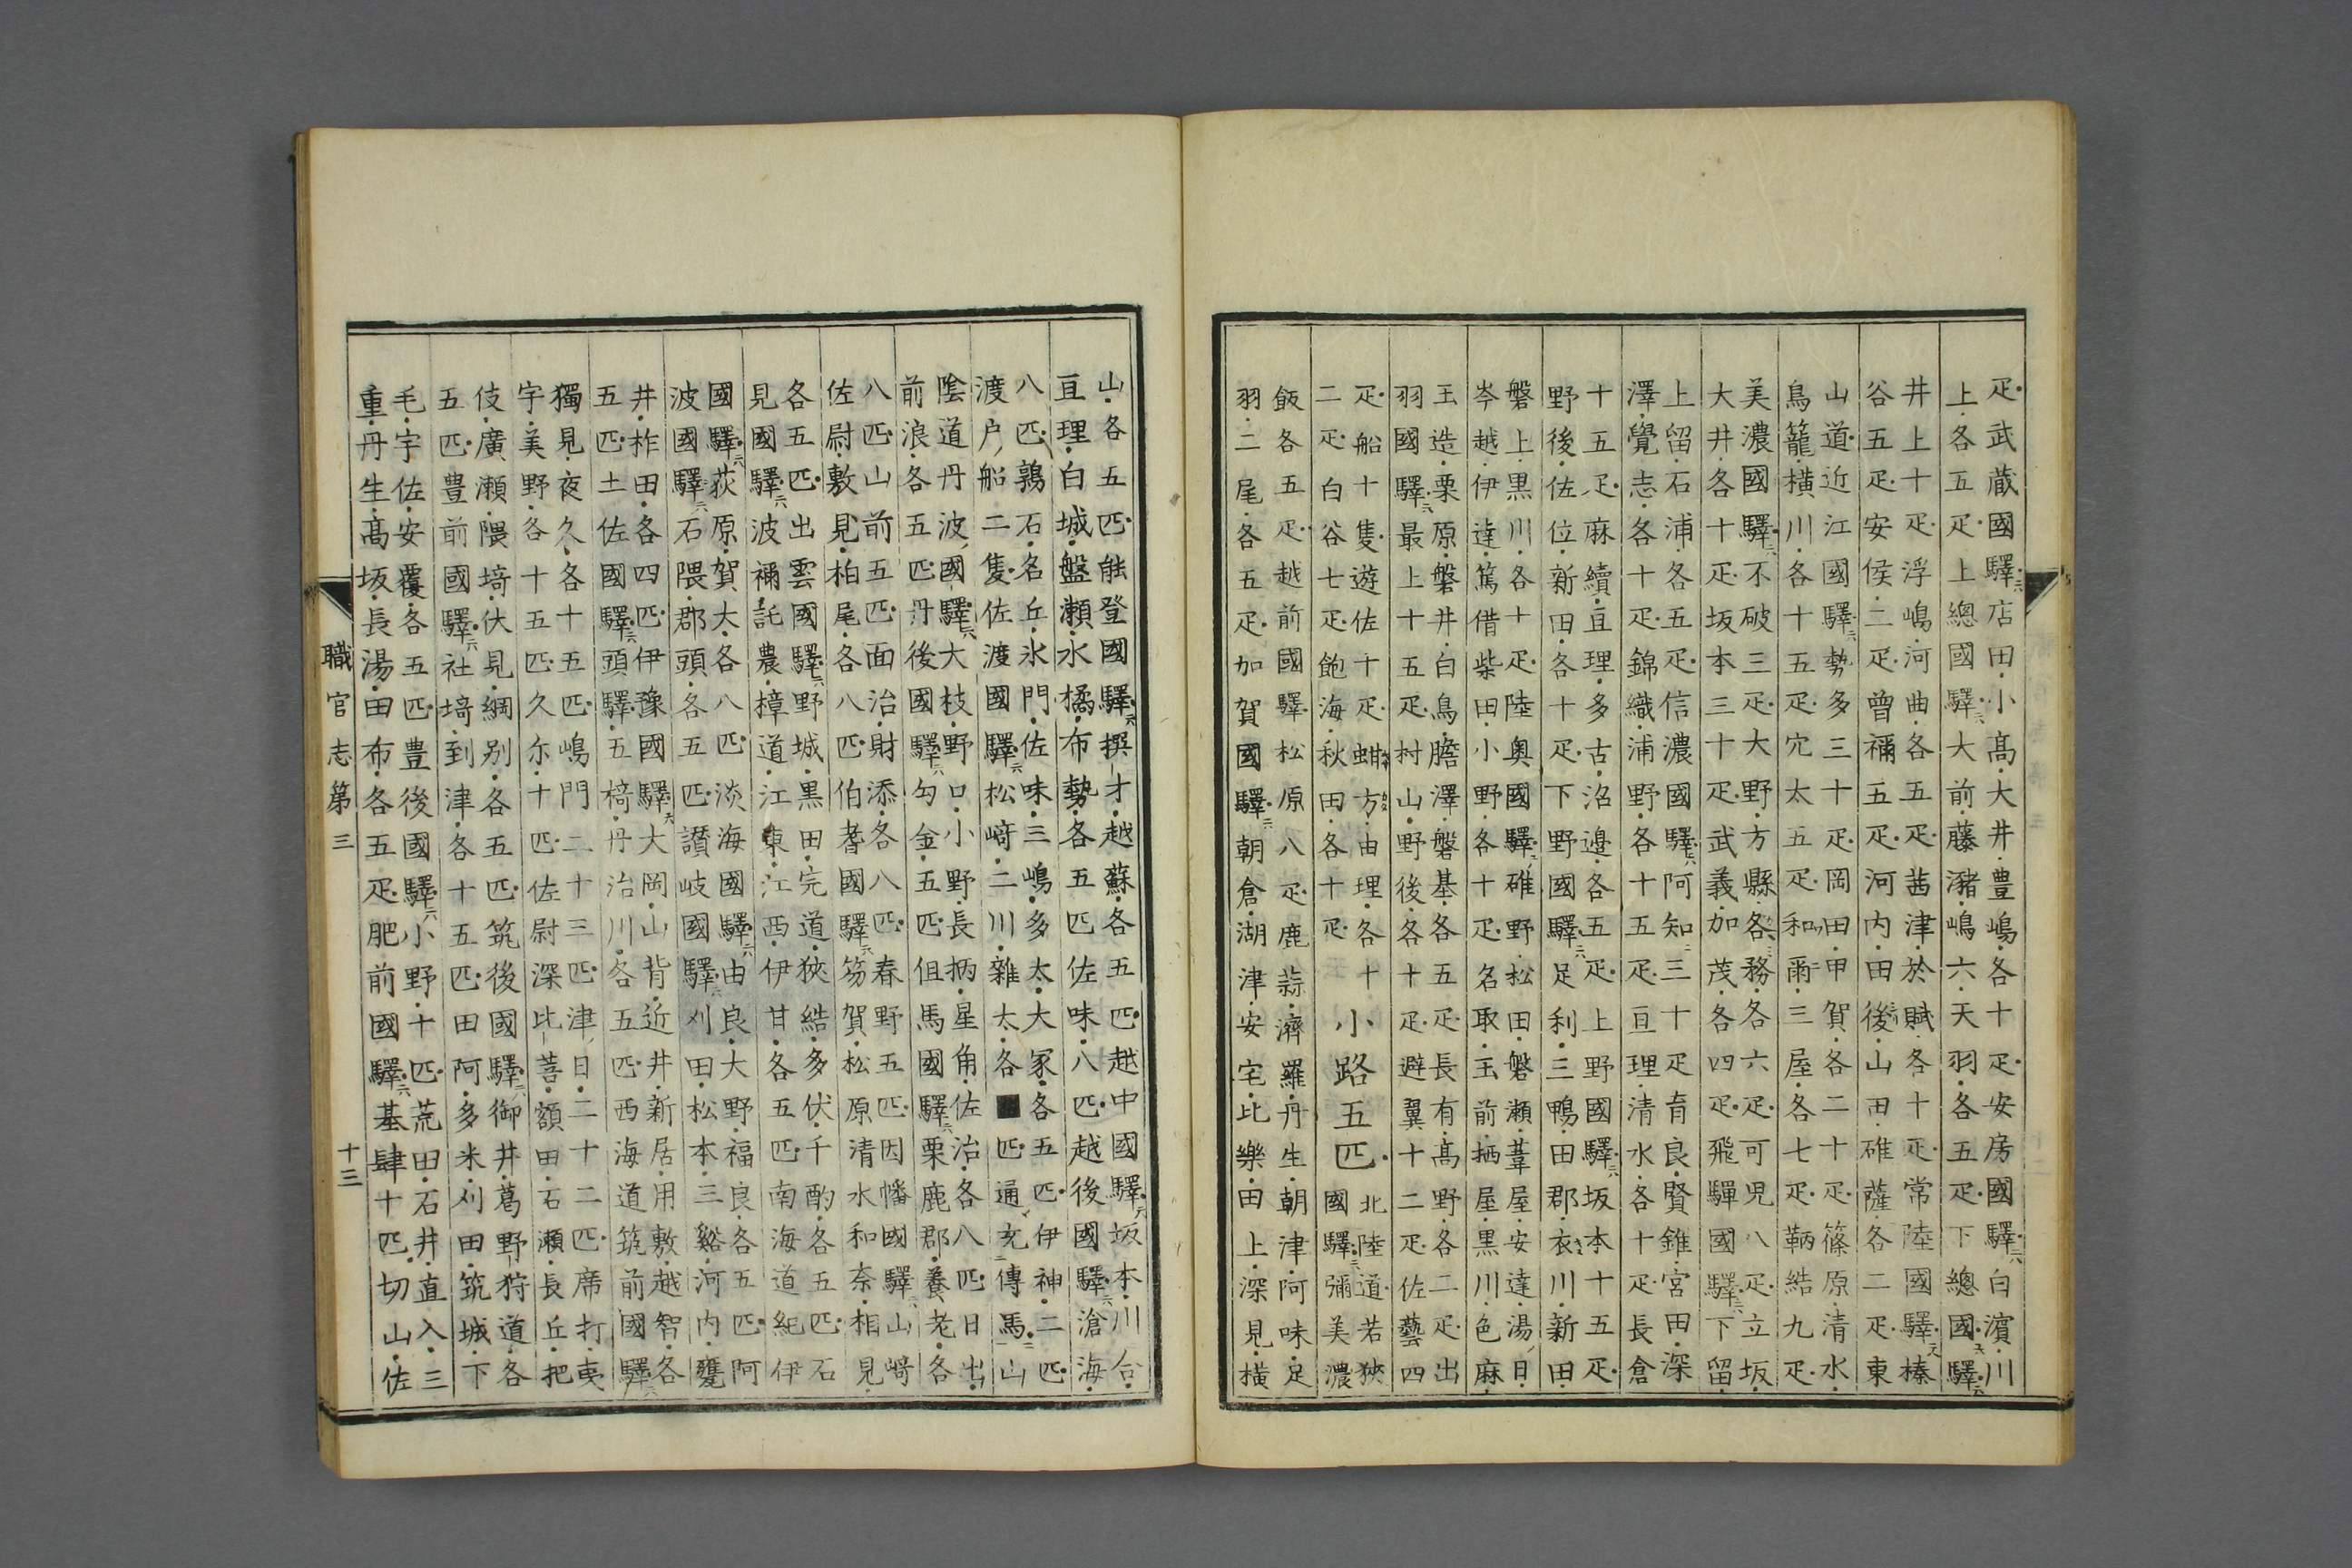 疋武蔵國驛店田小髙大井豊嶋各十疋安房國驛白濱川
上各五疋上總國驛大前藤瀦嶋六天羽各五疋下總國驛
井上十疋浮嶋河曲各五疋茜津於賦各十疋常陸國驛榛
谷五疋安侯二疋曾禰五疋河内田後山田碓薩各二疋東
山道近江國驛勢多三十疋岡田甲賀各二十疋篠原清水
鳥籠横川各十五疋穴太五疋和爾三屋各七疋鞆結九疋
美濃國驛不破三疋大野方縣各務各六疋可児八疋立坂
大井各十疋坂本三十疋武義加茂各四疋飛驒國驛下留
上留石浦各五疋信濃國驛阿知三十疋育良賢錐宮田深
澤覺志各十疋錦織浦野各十五疋亘理清水各十疋長倉
十五疋麻續亘理多古沼邉各五疋上野國驛坂本十五疋
野後佐位新田各十疋下野國驛足利三鴨田郡衣川新田
磐上黒川各十疋陸奥國驛碓野松田磐瀬葦屋安達湯日
岑越伊達篤借柴田小野各十疋名取玉前栖屋黒川色麻
玉造栗原磐井白鳥膽澤磐基各五疋長有髙野各二疋出
羽國驛最上十五疋村山野後各十疋避翼十二疋佐藝四
疋船十隻遊佐十疋蚶方由理各十
二疋白谷七疋飽海秋田各十疋
小路五匹
北陸道若狹
國驛彌美濃
飯各五疋越前國驛松原八疋鹿蒜濟羅丹生朝津阿味足
羽二尾各五疋加賀國驛朝倉湖津安宅比樂田上深見横
山各五匹能登國驛撰才越蘇各五匹越中國驛坂本川合
亘理白城盤瀬水橘布勢各五匹佐味八匹越後國驛滄海
八匹鶉石名丘氷門佐味三嶋多太大冢各五匹伊神二匹
渡户船二隻佐渡國驛松﨑二川雑太各■匹通充傳馬山
陰道丹波國驛大枝野口小野長柄星角佐治各八匹日出
前浪各五匹丹後國驛勾金五匹但馬國驛栗鹿郡養老各
八匹山前五匹面治財添各八匹春野五匹因幡國驛山﨑
佐尉敷見柏尾各八匹伯耆國驛笏賀松原清水和奈相見
各五匹出雲國驛野城黒田完道狹結多伏千酌各五匹石
見國驛波禰託農樟道江東江西伊甘各五匹南海道紀伊
國驛荻原賀大各八匹淡海國驛由良大野福良各五匹阿
波國驛石隈郡頭各五匹讃岐國驛刈田松本三谿河内甕
井柞田各四匹伊豫國驛大岡山背近井新居用敷越智各
五匹土佐國驛頭驛五椅丹治川各五匹西海道筑前國驛
獨見夜久各十五匹嶋門二十三匹津日二十二匹席打夷
宇美野各十五匹久尓十匹佐尉深比菩額田石瀬長丘把
伎廣瀬隈埼伏見綱别各五匹筑後國驛御井葛野狩道各
五匹豊前國驛社埼到津各十五匹田阿多米刈田筑城下
毛宇佐安覆各五匹豊後國驛小野十匹荒田石井直入三
重丹生髙坂長湯田布各五疋肥前國驛基肆十匹切山佐
職官志第三
十三